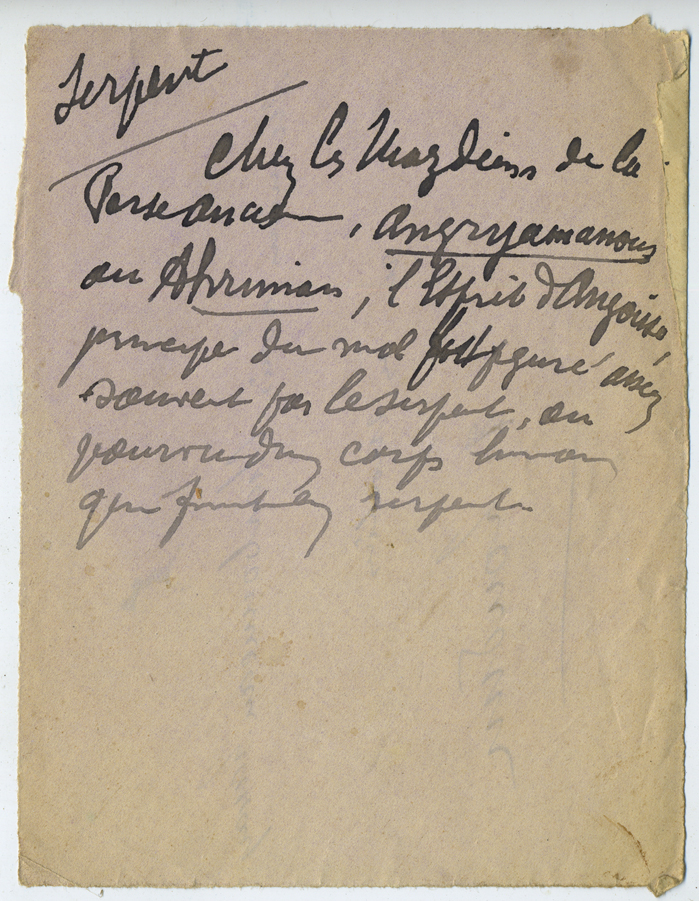 Serpent
Chez les Mazdéens de la
Perse ancienne, Angryamanous
ou Ahriman, l'Esprit d'Angoisse,
principe du mal fut figuré assez
souvent par le serpent, ou
pourvu d'un corps humain
que finit en serpent.